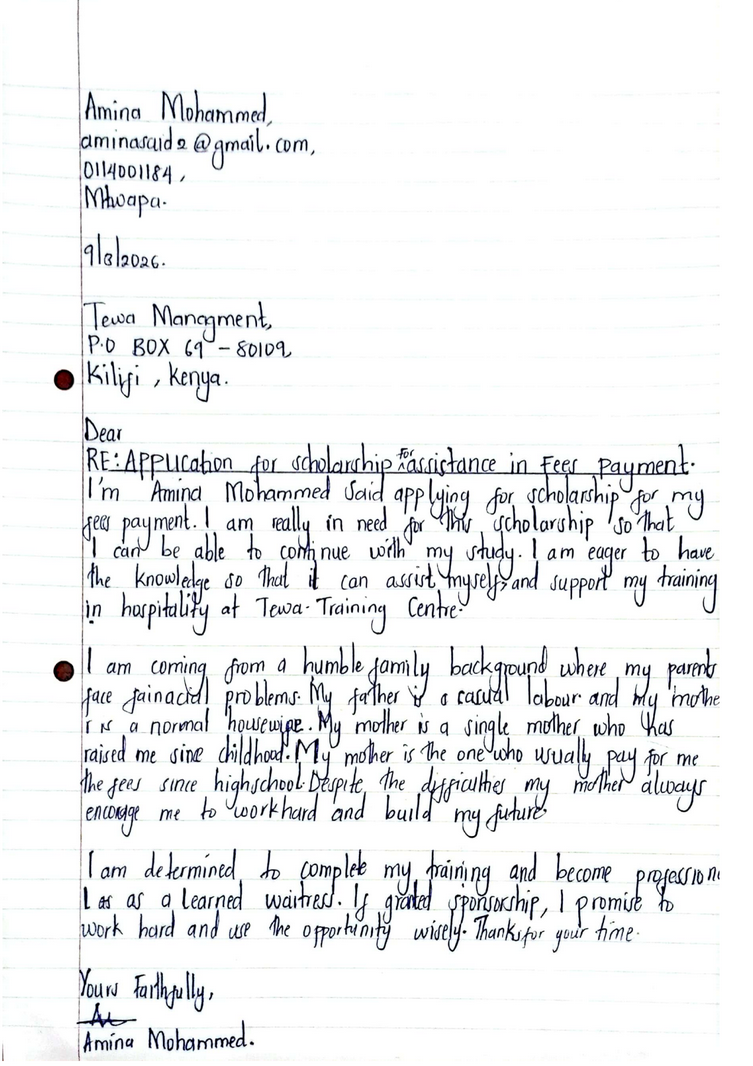 Amina Mohammed,
aminasaid2@gmail.com,
0114001184,
Mtwapa.
9/3/2026.
Tewa Managment,
P.O BOX 69 - 80109
Kilifi, Kenya.
Dear
RE: Application for scholarship for assistance in Fees payment.
I'm Amina Mohammed Said applying for scholarship for my
fees payment. I am really in need for this scholarship so that
I can be able to continue with my study. I am eager to have
the knowledge so that it can assist myself and support my training
in hospitality at Tewa-Training Centre.
I am coming from a humble family background where my parents
face fainacial problems. My father is a casual labour and my mothe
r is a normal housewife. My mother is a single mother who has
raised me sine childhood. My mother is the one who usually pay for me
the fees since highschool. Despite the difficulties my mother always
encorage me to workhard and build my future.
I am determined to complete my training and become professiona
l as as a learned waitress. If granted sponsorship, I promise to
work hard and use the opportunity wisely. Thanks for your time.
Yours Faithfully,
Amina Mohammed.